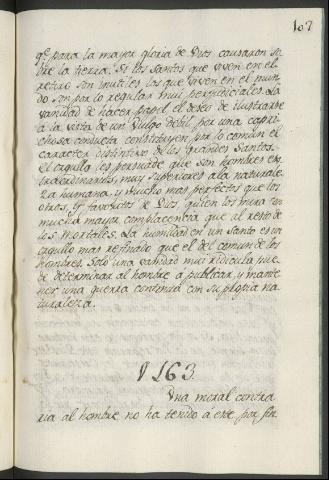 107
qe. para la mayor gloria de Dios causaron so
bre la tierra. Si los Santos que viven en el
retiro son inutiles los que viven en el mun
do son por lo regular mui perjudiciales. La
vanidad de hacer papel el deseo de ilustrarse
a la vista de un vulgo debil por una capri
chosa conducta constituyen por lo comun el
caracter distintivo de los grandes Santos.
El orgullo les persuade que son hombres ex
traordinarios, muy superiores a la naturale
za humana, y mucho mas perfectos que los
otros, y favoritos de Dios quien los mira con
mucha mayor complacencia que al resto de
los mortales. La humildad en un santo es un
orgullo mas refinado que el del comun de los
hombres. Solo una vanidad mui ridicula pue
de determinar al hombre á publicar, y mante
ner una guerra continua con su propia na
turaleza.
§ 163.
Una moral contra
ria al hombre no ha tenido á este por fin